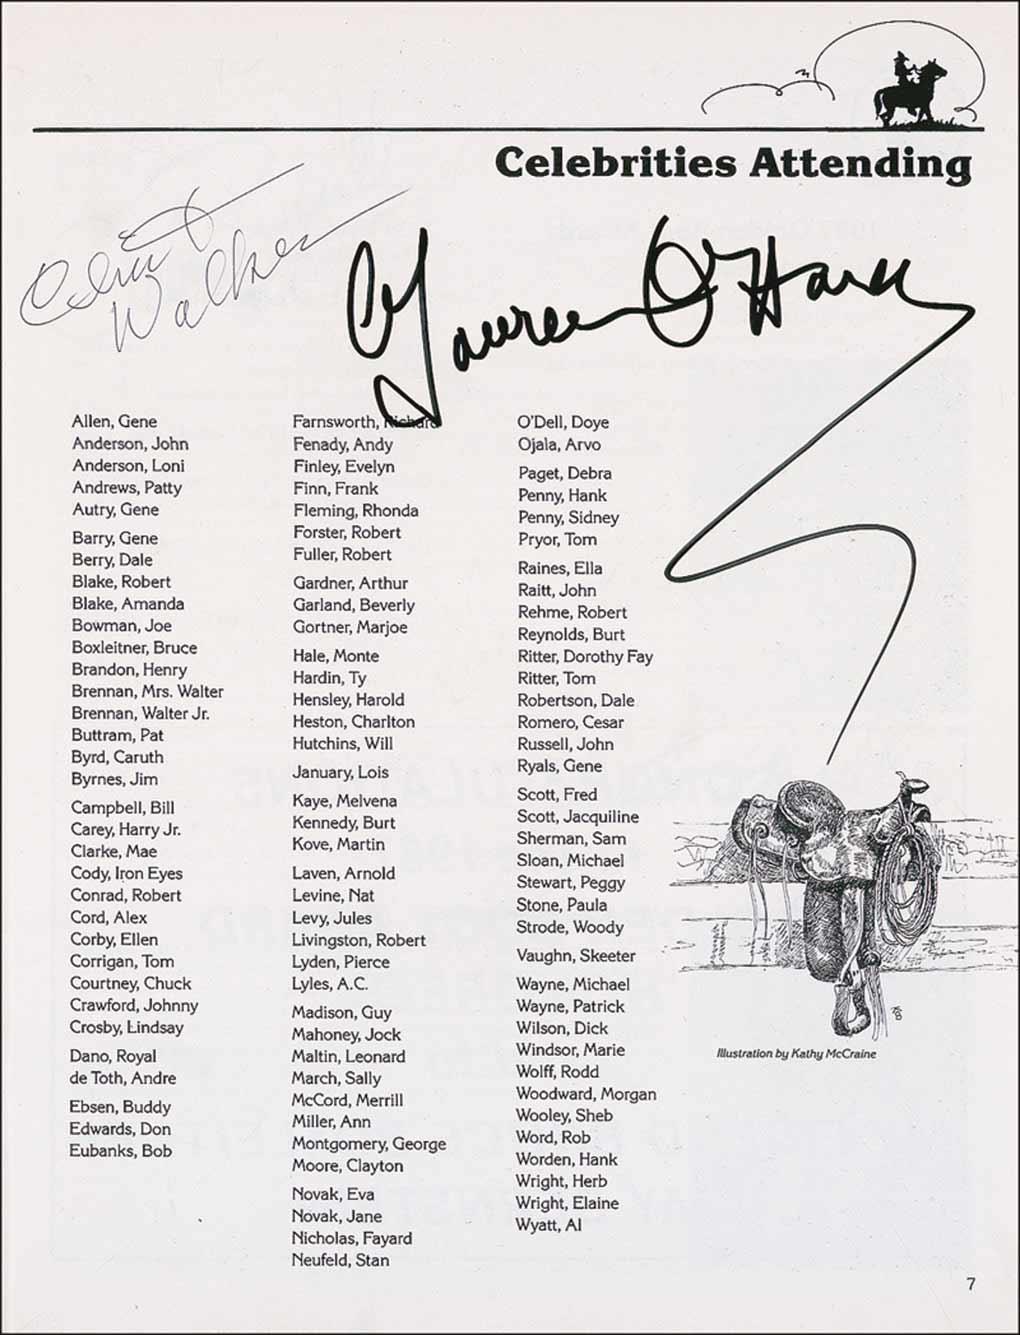 Celebrities Attending
Clint
Walker
Maureen O'Hara
Allen, Gene
Anderson, John
Anderson, Loni
Andrews, Patty
Autry, Gene
Barry, Gene
Berry, Dale
Blake, Robert
Blake, Amanda
Bowman, Joe
Boxleitner, Bruce
Brandon, Henry
Brennan, Mrs. Walter
Brennan, Walter Jr.
Buttram, Pat
Byrd, Caruth
Byrnes, Jim
Campbell, Bill
Carey, Harry Jr.
Clarke, Mae
Cody, Iron Eyes
Conrad, Robert
Cord, Alex
Corby, Ellen
Corrigan, Tom
Courtney, Chuck
Crawford, Johnny
Crosby, Lindsay
Dano, Royal
de Toth, Andre
Ebsen, Buddy
Edwards, Don
Eubanks, Bob
Farnsworth, Richard
Fenady, Andy
Finley, Evelyn
Finn, Frank
Fleming, Rhonda
Forster, Robert
Fuller, Robert
Gardner, Arthur
Garland, Beverly
Gortner, Marjoe
Hale, Monte
Hardin, Ty
Hensley, Harold
Heston, Charlton
Hutchins, Will
January, Lois
Kaye, Melvena
Kennedy, Burt
Kove, Martin
Laven, Arnold
Levine, Nat
Levy, Jules
Livingston, Robert
Lyden, Pierce
Lyles, A.C.
Madison, Guy
Mahoney, Jock
Maltin, Leonard
March, Sally
McCord, Merrill
Miller, Ann
Montgomery, George
Moore, Clayton
Novak, Eva
Novak, Jane
Nicholas, Fayard
Neufeld, Stan
O'Dell, Doye
Ojala, Arvo
Paget, Debra
Penny, Hank
Penny, Sidney
Pryor, Tom
Raines, Ella
Raitt, John
Rehme, Robert
Reynolds, Burt
Ritter, Dorothy Fay
Ritter, Tom
Robertson, Dale
Romero, Cesar
Russell, John
Ryals, Gene
Scott, Fred
Scott, Jacquiline
Sherman, Sam
Sloan, Michael
Stewart, Peggy
Stone, Paula
Strode, Woody
Vaughn, Skeeter
Wayne, Michael
Wayne, Patrick
Wilson, Dick
Windsor, Marie
Wolff, Rodd
Woodward, Morgan
Wooley, Sheb
Word, Rob
Worden, Hank
Wright, Herb
Wright, Elaine
Wyatt, Al
Illustration by Kathy McCraine
7